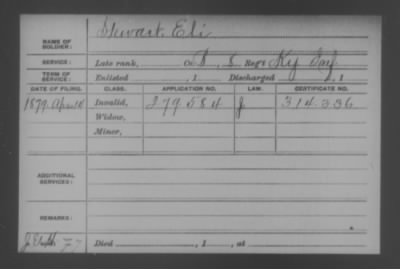 NAME OF SOLDIER: Stewart, Eli
SERVICE: Late rank, Co. D, 8 Reg't Ky Inf
TERM OF SERVICE: Enlisted , 1 Discharged , 1
DATE OF FILING. CLASS. APPLICATION NO. LAW. CERTIFICATE NO.
1879 Invalid, 279584 J 314.336
Widow,
Minor,
ADDITIONAL SERVICES:
REMARKS:
Died , 1 , at